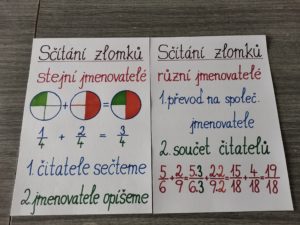 Sčítání zlomků
stejní jmenovatelé
+ =
1/4 + 2/4 = 3/4
1. čitatele sečteme
2. jmenovatele opíšeme
Sčítání zlomků
různí jmenovatelé
1. převoď na společ.
jmenovatele
2. součet čitatelů
5/6 + 2/9 = 5.3/6.3 + 2.2/9.2 = 15/18 + 4/18 = 19/18